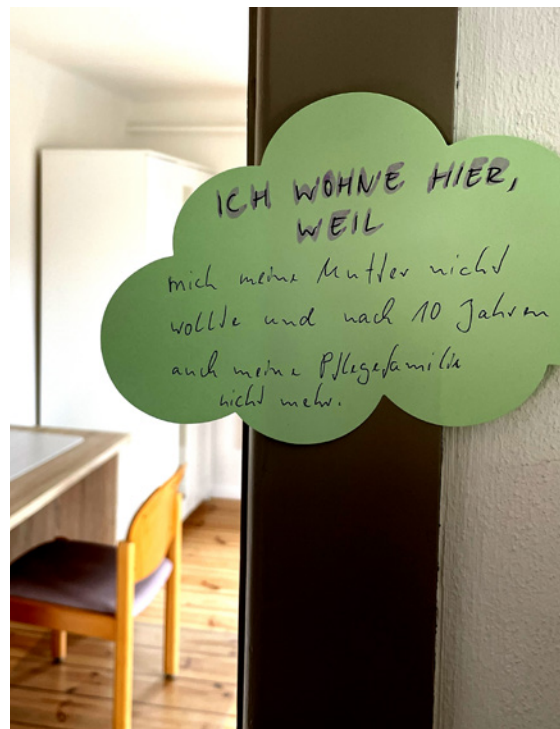 ICH WOHNE HIER,
WEIL
mich meine Mutter nicht
wollte und nach 10 Jahren
auch meine Pflegefamilie
nicht mehr.